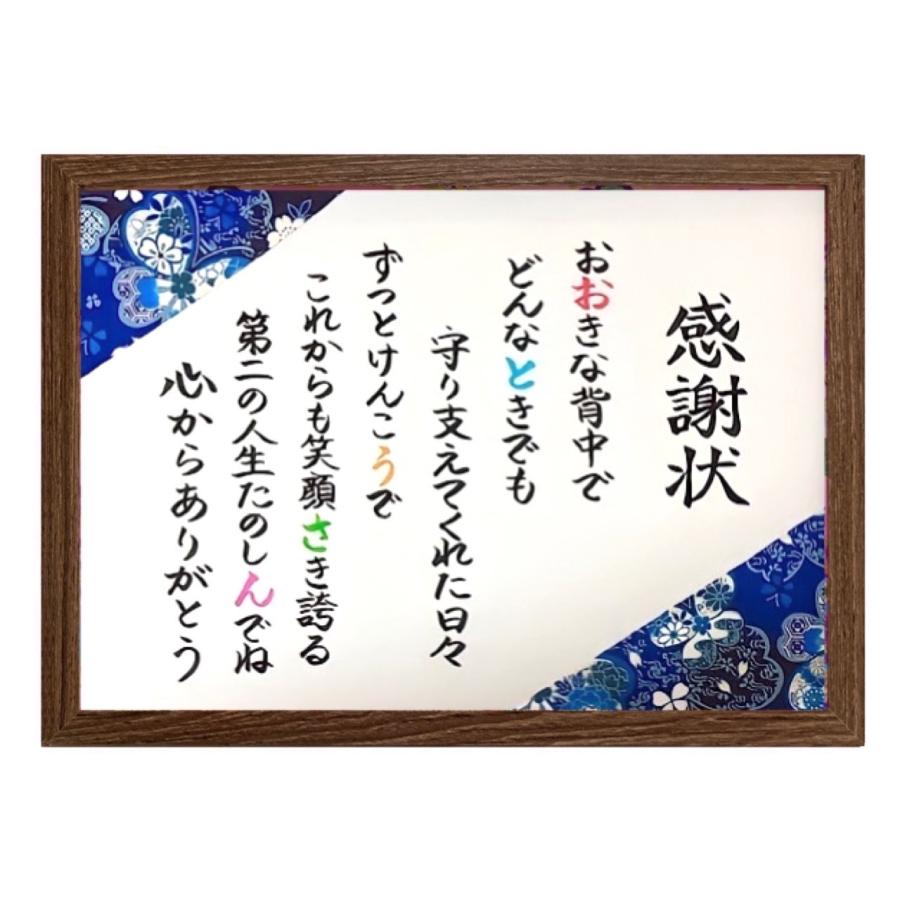 感謝状
おおきな背中で
どんなときでも
守り支えてくれた日々
ずっとけんこうで
これからも笑顔さき誇る
第二の人生たのしんでね
心からありがとう